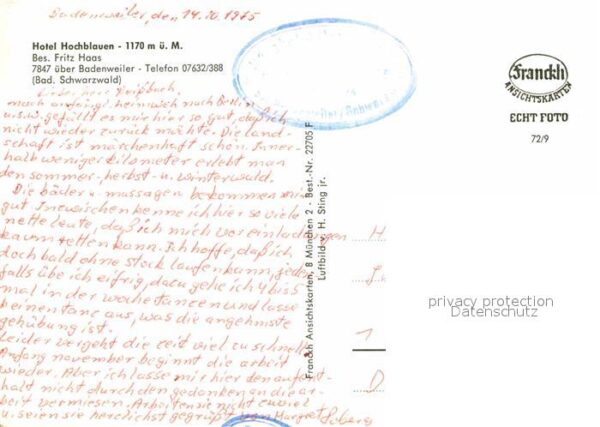 Badenweiler, den 14.10.1975
Hotel Hochblauen - 1170 m ü. M.
Bes. Fritz Haas
7847 über Badenweiler - Telefon 07632/388
(Bad. Schwarzwald)
Lieber herr
nach anfängl. heimweh nach Berlin
u.s.w. gefällt es mir hier so gut, daß ich
nicht wieder zurück möchte. Die land-
schaft ist märchenhaft schön. Inner-
halb weniger kilometer erlebt man
den sommer-, herbst- u. winterwald.
Die bäder u. massagen bekommen mir
gut Inzwischen kenne ich hier so viele
nette leute, daß ich mich vor einladungen
kaum retten kann. Ich hoffe, daß ich
doch bald ohne stock laufen kann, jeden-
falls übe ich eifrig, dazu gehe ich 4 bis 5
mal in der woche tanzen und lasse
keinen tanz aus, was die angenehmste
gehübung ist.
Leider vergeht die zeit viel zu schnell
Anfang november beginnt die arbeit
wieder. Aber ich lasse mir hier den aufent-
halt nicht durch den gedanken an die ar-
beit vermiesen. Arbeiten sie nicht zuviel
u. seien sie herzlichst gegrüßt von Margret
Franckh Ansichtskarten, 8 München 2 - Best.-Nr. 22705 F
Luftbild v. H. Sting jr.
Franckh
ANSICHTSKARTEN
ECHT FOTO
72/9
H
L
1
D
privacy protection
Datenschutz